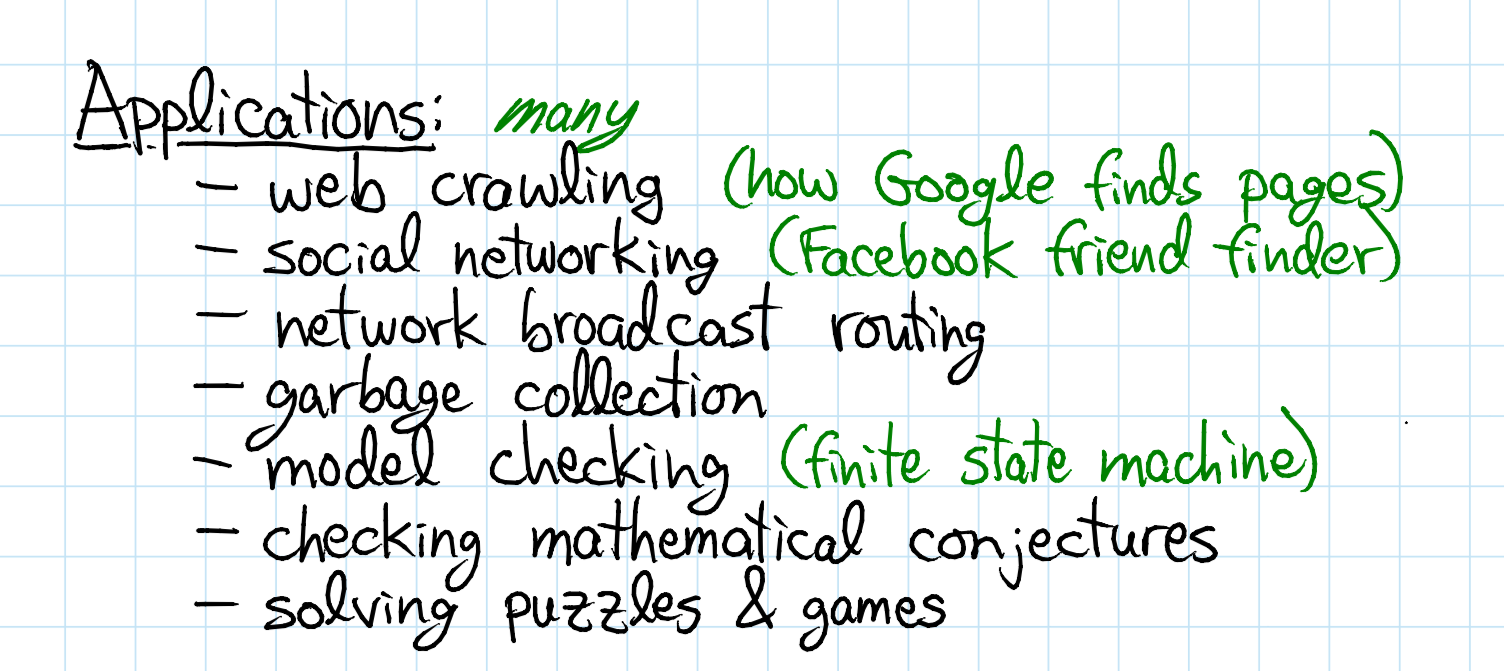 Applications: many
- web crawling (how Google finds pages)
- social networking (Facebook friend finder)
- network broadcast routing
- garbage collection
- model checking (finite state machine)
- checking mathematical conjectures
- solving puzzles & games